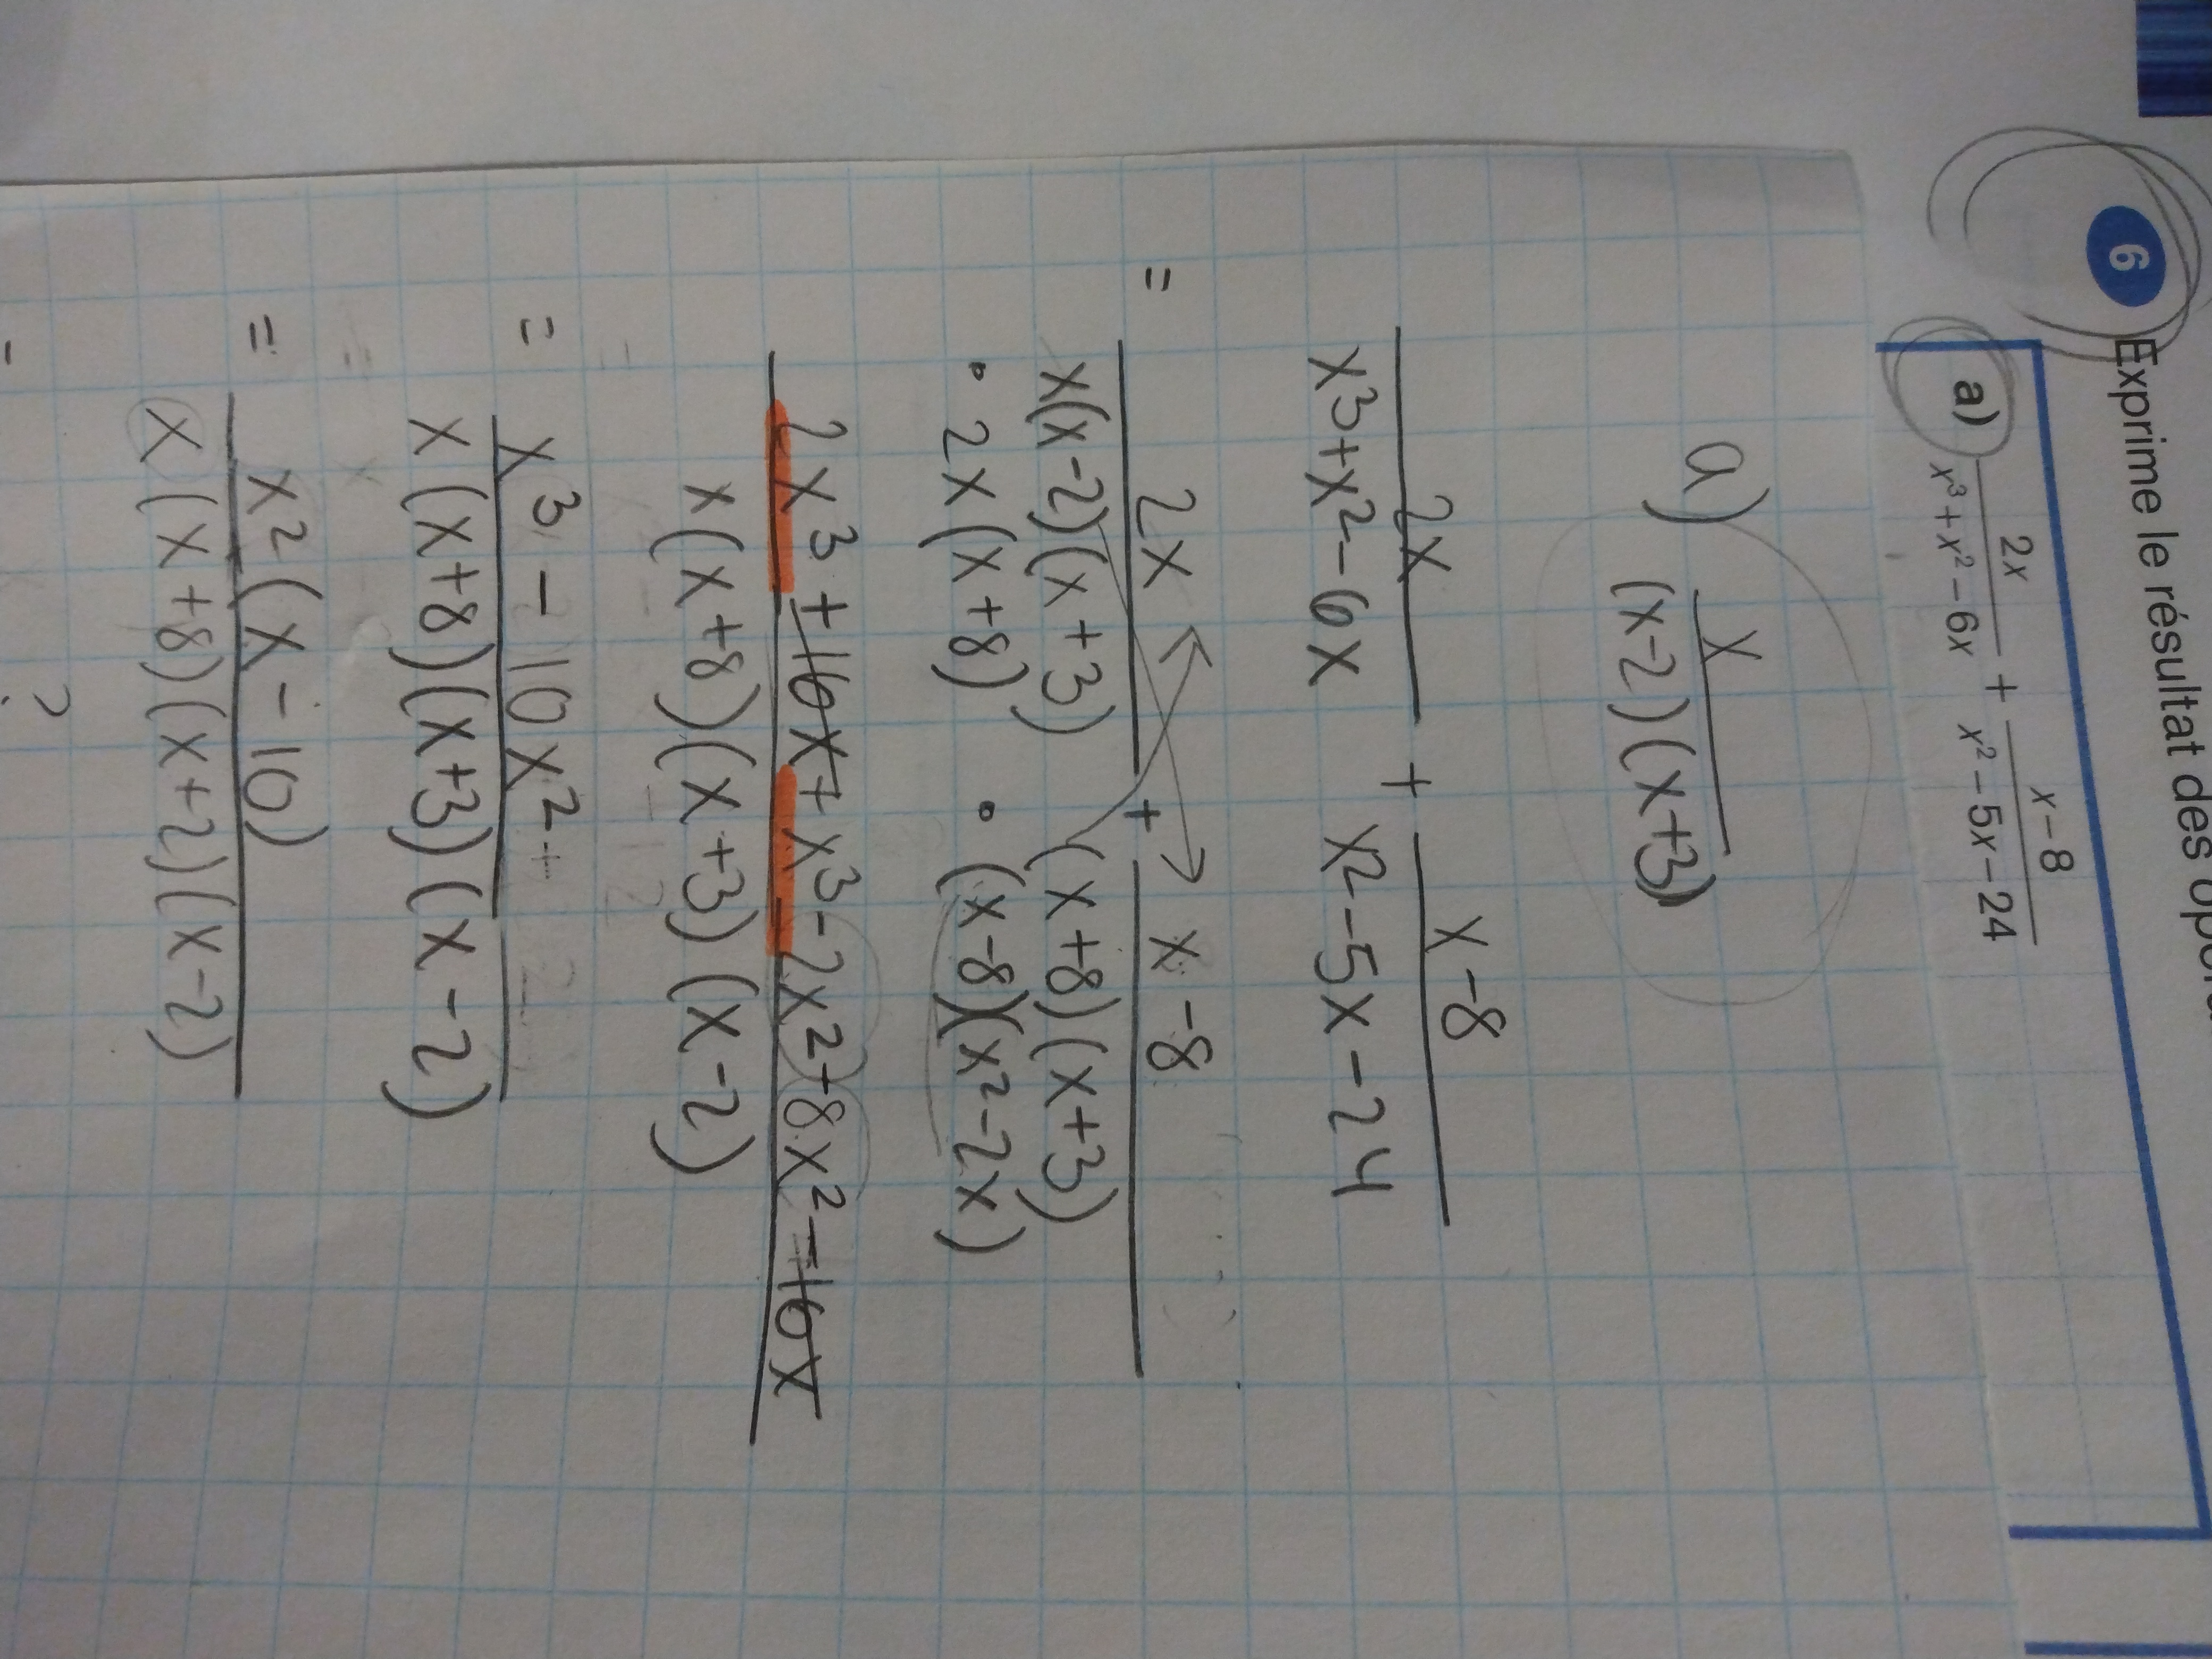 6 Exprime le résultat des
a) 2x / x³ + x² − 6x + x − 8 / x² − 5x − 24
a) x / (x-2)(x+3)
2x / x³+x²-6x + x-8 / x²-5x-24
= 2x / x(x-2)(x+3) + x-8 / (x+8)(x+3)
• 2x(x+8) • (x-8)(x²-2x)
2x³ + 16x + x³ - 2x² + 8x² - 16x
x(x+8)(x+3)(x-2)
= x³ - 10x² +
x(x+8)(x+3)(x-2)
= x²(x-10)
x(x+8)(x+2)(x-2)
= ?